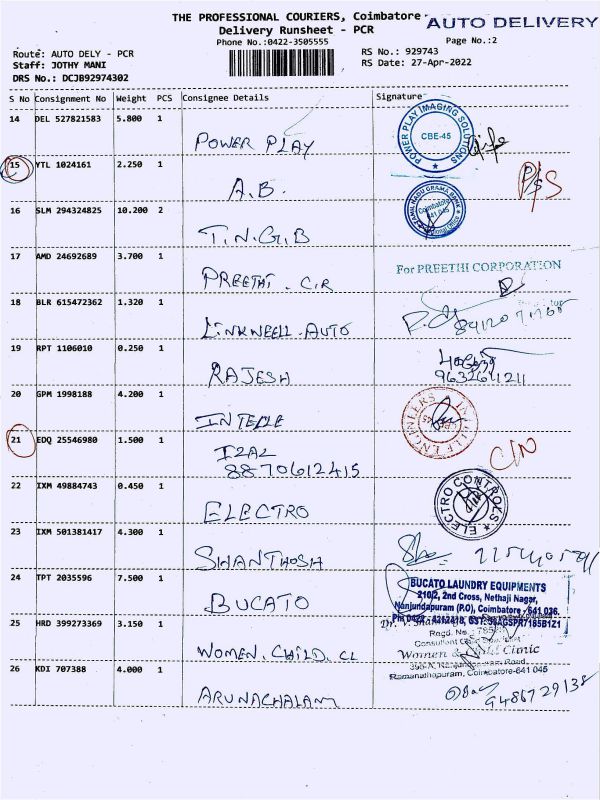 THE PROFESSIONAL COURIERS, Coimbatore
AUTO DELIVERY
Delivery Runsheet - PCR
Phone No.:0422-3505555
Page No.:2
Route: AUTO DELY - PCR
RS No.: 929743
Staff: JOTHY MANI
RS Date: 27-Apr-2022
DRS No.: DCJB92974302
S No Consignment No Weight PCS Consignee Details Signature
14 DEL 527821583 5.800 1
POWER PLAY
POWER PLAY IMAGING SOLUTIONS
CBE-45
15 YTL 1024161 2.250 1
A.B.
P/S
16 SLM 294324825 10.200 2
T.N.G.B
TAMIL NADU GRAMA BANK
Coimbatore
641 045
17 AMD 24692689 3.700 1
PREETHI . C.R
For PREETHI CORPORATION
18 BLR 615472362 1.320 1
LINKWELL . AUTO
19 RPT 1106010 0.250 1
RAJESH
9632641211
20 GPM 1998188 4.200 1
INTELLE
21 EDQ 25546980 1.500 1
IZAZ
8870612415
C/N
22 IXM 49884743 0.450 1
ELECTRO
ELECTRO CONTROLS
23 IXM 501381417 4.300 1
SHANTHOSH
24 TPT 2035596 7.500 1
BUCATO
BUCATO LAUNDRY EQUIPMENTS
210/2, 2nd Cross, Nethaji Nagar,
Nanjundapuram (P.O), Coimbatore - 641 036.
25 HRD 399273369 3.150 1
WOMEN. CHILD. CL
Regd. No.
Women & Child Clinic
Ramanathapuram, Coimbatore-641 045
26 KDI 707388 4.000 1
ARUNACHALAM
9486729138